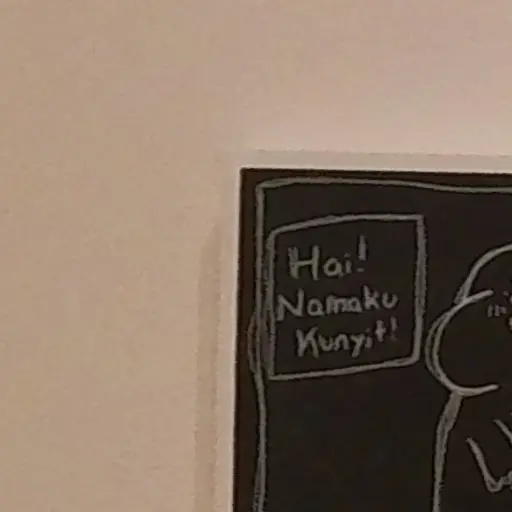 Hai!
Namaku
Kunyit!